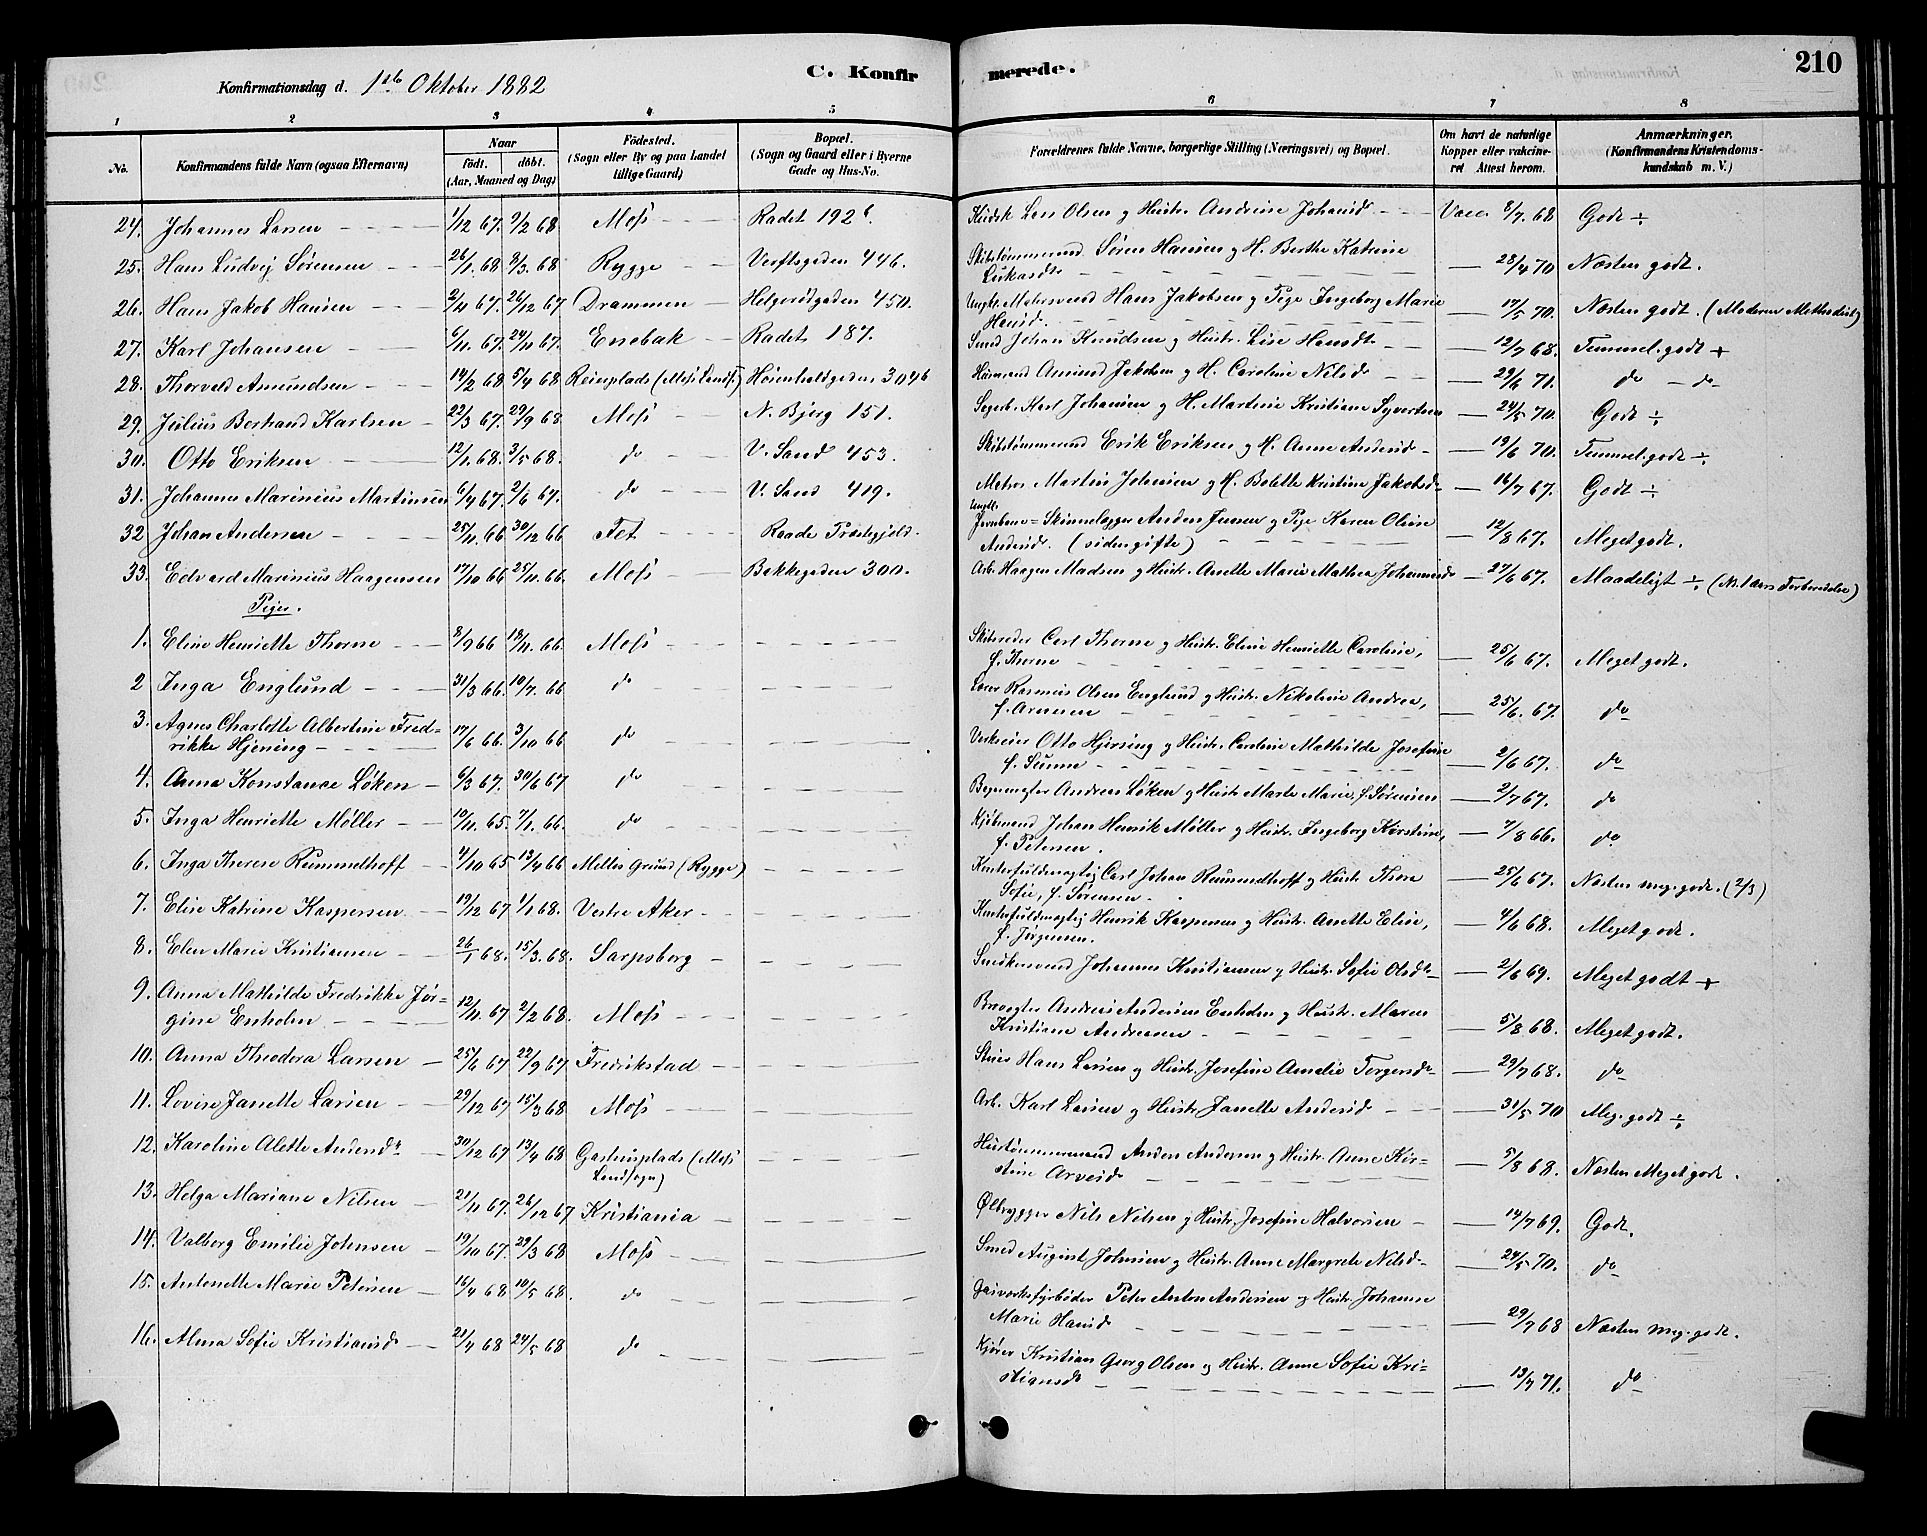 210
C. Konfirmerede.
Konfirmationsdag d. 1ste Oktober 1882
1 2 3 4 5 6 7 8
No. Konfirmandens fulde Navn (ogsaa Efternavn) Naar født. døbt. (Aar, Maaned og Dag) Födested. (Sogn eller By og paa Landet tillige Gaard) Bopæl. (Sogn og Gaard eller i Byerne Gade og Hus-No. Forældrenes fulde Navne, borgerlige Stilling (Næringsvei) og Bopæl. Om havt de naturlige Kopper eller vakcineret Attest herom. Anmærkninger. (Konfirmandens Kristendomskundskab m. V.)
24. Johannes Larsen 1/12 67. 9/2 68 Moss Radet 192 b. Lars Olsen og Hustr. Andrine Johansd Vacc. 8/7. 68 Godt ÷
25. Hans Ludvig Sørensen 26/1. 68 8/3. 68 Rygge Verftsgaden 446. Skibstømmermand Søren Hansen og H. Berthe Katrine
Lukasdtr — 28/4 70 Næsten godt.
26. Hans Jakob Hansen 2/11 67. 26/12 67 Drammen Helgerødgaden 450. Ungk. Matersvend Hans Jakobsen og Pige Ingeborg Marie
Hansd. — 17/5 70. Næsten godt. (Moderen Methodist)
27. Karl Johansen 6/11. 67. 24/11 67. Enebak Radet 187. Smed Johan Knudsen og Hustr. Lise Hansdtr — 12/7 68. Temmel. godt +
28. Thorvald Amundsen 14/2 68 5/4 68 Reierplads (Moss Landss.) Høienhaldgaden 304 b Amund Jakobsen og H. Caroline Nilsd — 29/6 71. do — do
29. Julius Berhand Karlsen 22/3 67. 29/9 68 Moss N. Bjerg 151. Karl Johansen og H. Martine Kristiane Syvertsen — 24/5 70. Godt ÷
30. Otto Eriksen 12/1. 68. 3/5 68. do V. Sand 453. Skibstømmermand Erik Eriksen og H. Anne Andersd — 19/6 70. Temmel. godt ÷
31. Johannes Marinius Martinsen 6/4 67. 2/6 67. do V. Sand 409. Matros Martin Johansen og H. Bolette Kristine Jakobsd — 16/7 67. Godt ÷
32 Johan Andersen 25/11. 66 30/12 66 Fet Raade Præstegjeld. Ungk. Jernbane-Skinnelægger Anders Jensen og Pige Karen Oline
Andersd. (siden gifte) — 12/8 67. Meget godt.
33. Edvard Marinius Haagensen 17/10 66 25/11. 66. Moss Bakkegaden 300. Arb. Haagen Madsen og Hustr. Anette Marie Mathea Johannesd — 27/6 67. Maadeligt ÷ (Nr. 1 Aars Forberedelse)
Piger.
1. Eline Henriette Thorne 8/9 66 18/11. 66. Moss Skibsreder Carl Thorne og Hustr. Eline Henriette Caroline,
f. Thorne — 25/6 67. Meget godt.
2 Inga Englund 31/3 66. 10/7. 66 do Rasmus Olsen Englund og Hustr. Nikoline Andrea,
f. Arnesen — 25/6. 67. do
3. Agnes Charlotte Albertine Fred-
rikke Hjersing 17/6 66. 3/10 66 do Verkseier Otto Hjersing og Hustr. Caroline Mathilde Josefine
f. Sunne — 2/6 67. do
4. Anna Konstance Løken 6/3 67. 30/6 67 do Andreas Løken og Hustr. Marte Marie, f. Sørensen — 2/7 67. do
5. Inga Henriette Møller 10/11. 65. 7/1. 66. do Kjøbmand Johan Henrik Møller og Hustr. Ingeborg Kirstine,
f. Petersen. — 7/8 66. do
6. Inga Therese Rummelhoff 4/10 65 13/4 66 Milles Grund (Rygge) Kontorfuldmægtig Carl Johan Rummelhoff og Hustr. Thora
Sofie, f. Sørensen — 25/6 67. Næsten meg. godt. (2/3)
7. Elise Katrine Kaspersen 19/12 67 1/1 68. Vestre Aker Kontorfuldmægtig Henrik Kaspersen og Hustr. Anette Elise,
f. Jørgensen. — 4/6 68. Meget godt.
8. Elen Marie Kristiansen 26/1 68. 15/3. 68. Sarpsborg Snedkersvend Johannes Kristiansen og Hustr. Sofie Olsdtr — 2/6 69. Meget godt +
9. Anna Mathilde Fredrikke Jør-
gine Enholm 12/11. 67 2/2 68. Moss Andreas Andersen Enholm og Hustr. Maren
Kristiane Andreasen — 5/8 68. Meget godt.
10. Anna Theodora Larsen 25/6 67 22/9 67 Fredrikstad Hans Larsen og Hustr. Josefine Amalie Torgersdtr — 29/7 68. do
11. Lovise Janette Larsen 29/12 67 15/3 68 Moss Arb. Karl Larsen og Hustr. Janette Andersd — 31/5 70 Meg. godt ÷
12. Karoline Alette Andersdtr 30/12 67 13/4 68 Gashusplads (Moss
Landsogn) Hustømmermand Anders Andersen og Hustr. Anne Kir-
stine Arvesd — 5/8 68. Næsten Meget godt.
13. Helga Mariane Nilsen 21/11 67. 26/12 67 Kristiania Ølbrygger Nils Nilsen og Hustr. Josefine Halvorsen — 14/7 69. Godt.
14. Valborg Emilie Johnsen 19/10 67. 29/3 68 Moss Smed August Johnsen og Hustr. Anne Margrete Nilsd — 24/5 70. do
15. Antonette Marie Petersen 16/4 68 10/5 68. do Gasverksfyrbøder Peter Anton Andersen og Hustr. Johanne
Marie Hansd — 29/7 68 Næsten meg. godt.
16. Alma Sofie Kristiansd 21/4 68 24/5 68 do Kjører Kristian Georg Olsen og Hustr. Anne Sofie Kri-
stiansd — 13/7 71. do